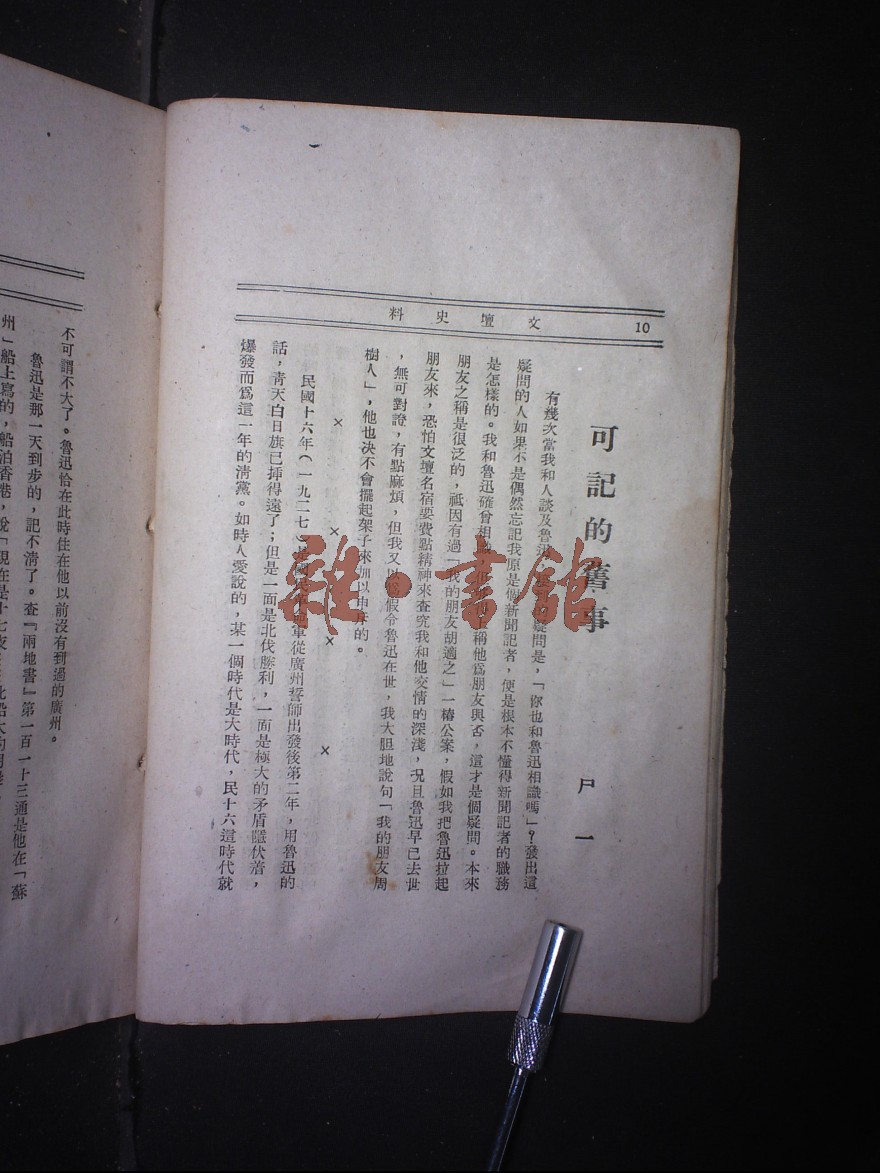 10
文壇史料
可記的舊事
尸一
有幾次當我和人談及魯迅,疑問是,「你也和魯迅相識嗎」?發出這
疑問的人如果不是偶然忘記我原是個新聞記者,便是根本不懂得新聞記者的職務
是怎樣的。我和魯迅確曾相稱他爲朋友與否,這才是個疑問。本來
朋友之稱是很泛的,祗因有過「我的朋友胡適之」一樁公案,假如我把魯迅拉起
朋友來,恐怕文壇名宿要費點精神來查究我和他交情的深淺,况且魯迅早已去世
,無可對證,有點麻煩,但我又以假令魯迅在世,我大胆地說句「我的朋友周
樹人」,他也决不會擺起架子來加以申斥的。
× × × ×
民國十六年(一九二七)是國民革命軍從廣州誓師出發後第二年,用魯迅的
話,青天白日旗已挿得遠了;但是一面是北伐勝利,一面是極大的矛盾隱伏着,
爆發而爲這一年的淸黨。如時人愛說的,某一個時代是大時代,民十六這時代就
不可謂不大了。魯迅恰在此時住在他以前沒有到過的廣州。
魯迅是那一天到步的,記不淸了。查『兩地書』第一百一十三通是他在「蘇
州」船上寫的,船泊香港,說「現在是十七夜
雜·書館